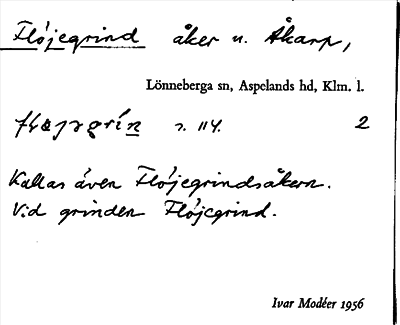 Flöjegrind åker u. Åkarp,
Lönneberga sn, Aspelands hd, Klm. l.
s. 114. 2
Kallas även Flöjegrindsåkern.
Vid grinden Flöjegrind.
Ivar Modéer 1956